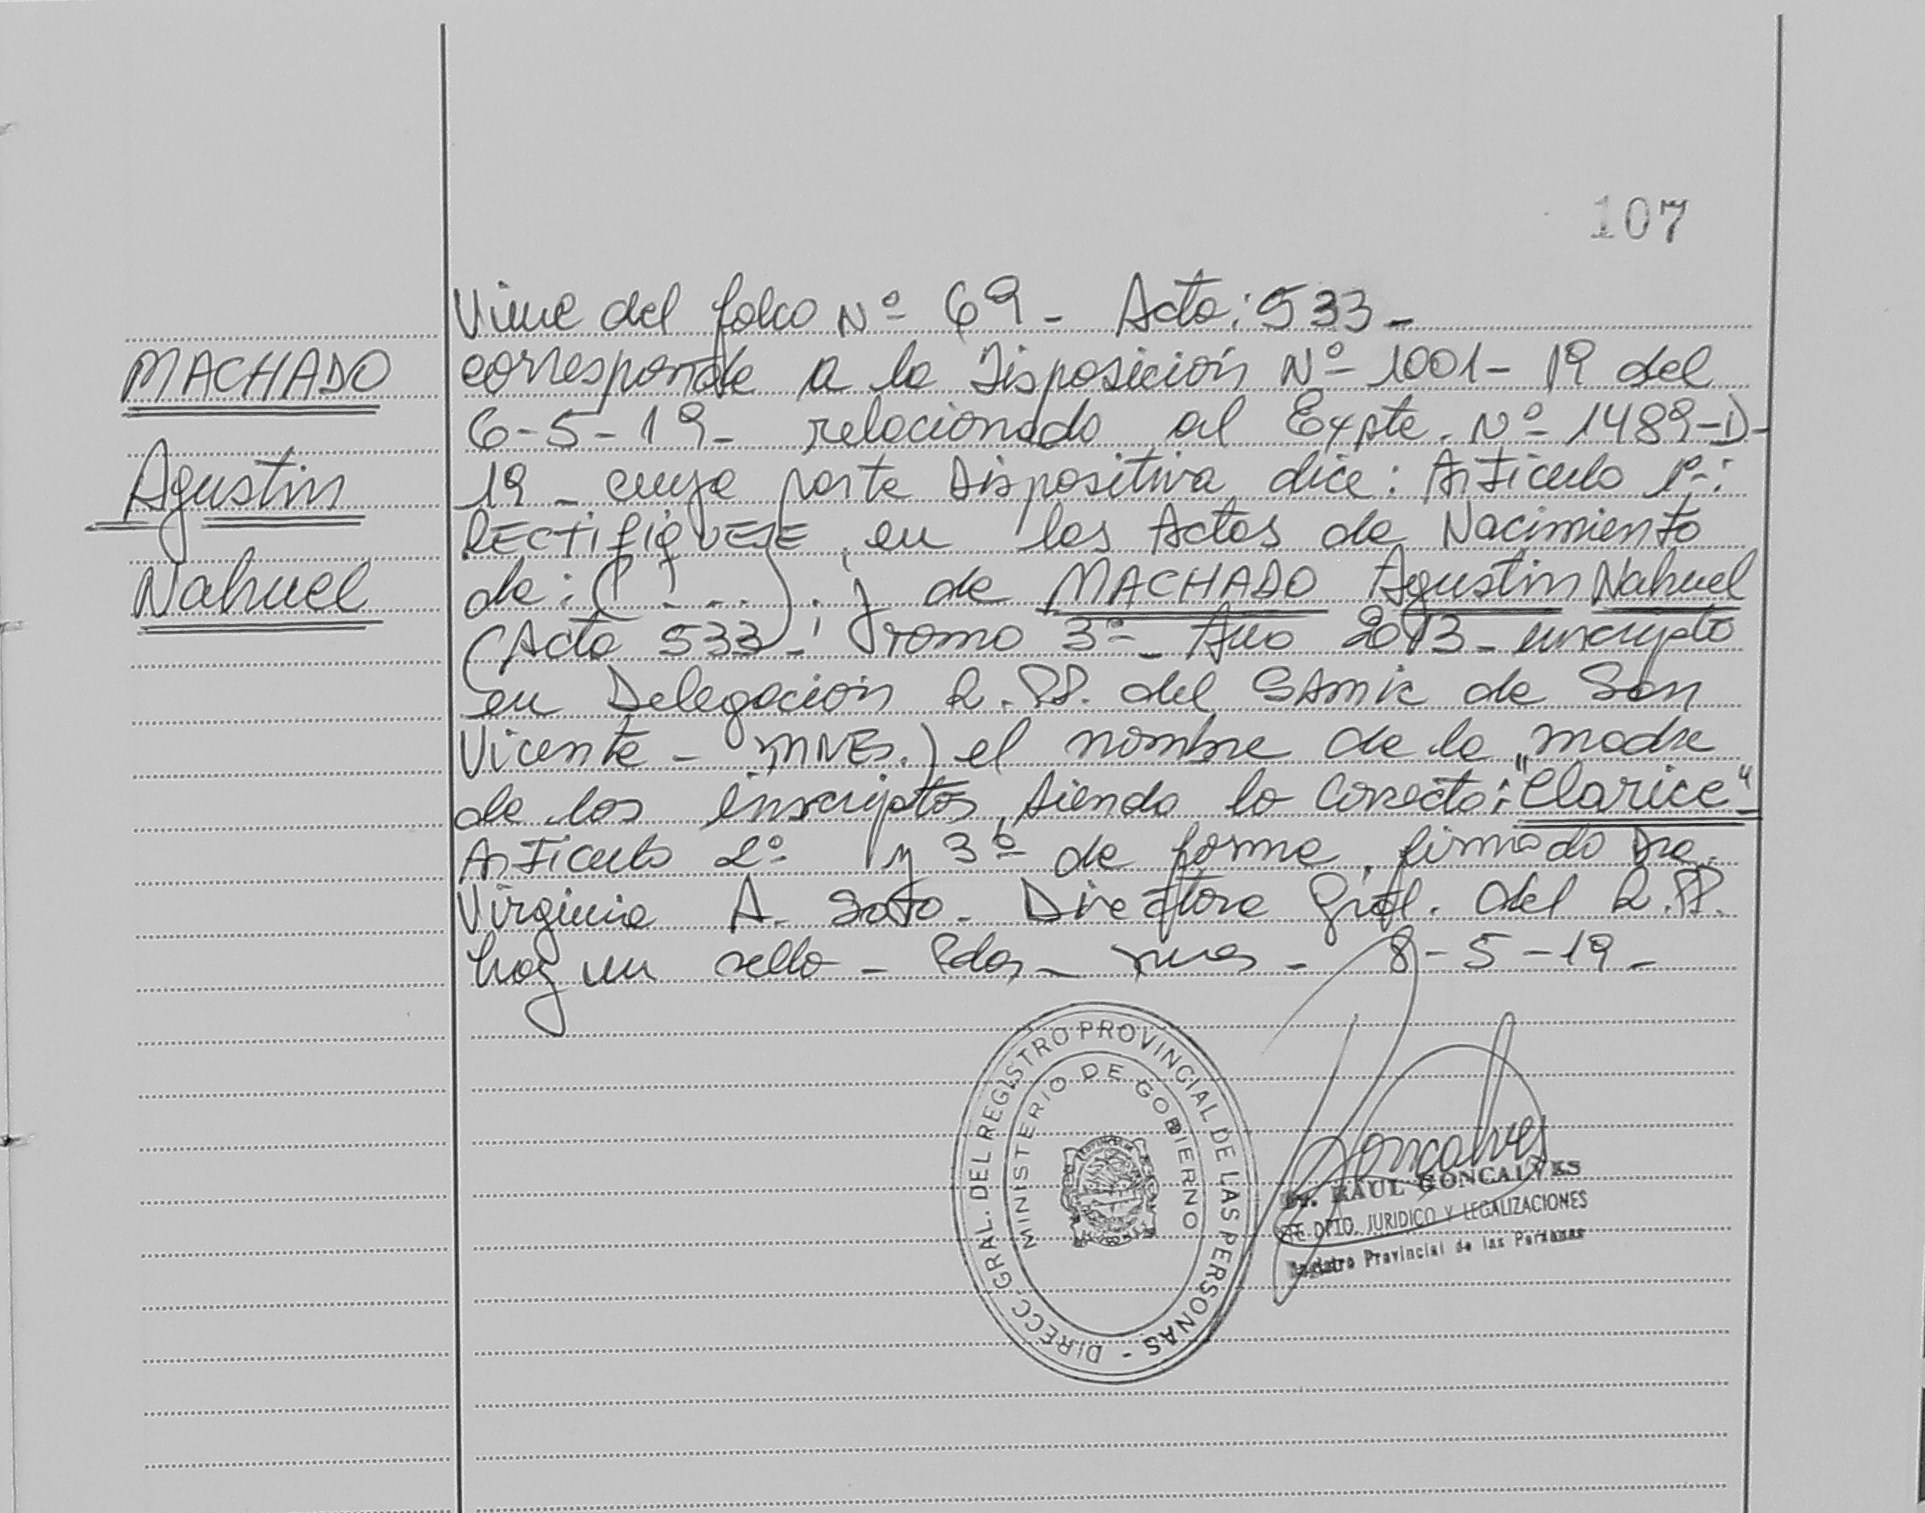 107
MACHADO
Agustin
Nahuel
Viene del folio Nº 69 - Acta: 533 -
corresponde a la Disposición Nº 1001 - 19 del
6-5-19 - relacionado al Expte. Nº 1489-D-
19 - cuya parte Dispositiva dice: Artículo 1º:
RECTIFIQUESE, en las Actas de Nacimiento
de: (....). y de MACHADO Agustin Nahuel
(Acta 533 - Tomo 3º - Año 2013 - inscripto
en Delegación R.PP. del SAMIC de San
Vicente - MNES.) el nombre de la madre
de los inscriptos, siendo lo correcto: "Clarice"-
Artículo 2º y 3º de forma, firmado Dra.
Virginia A. Soto - Directora Gral. del R.PP.
hay un sello - Pdas - mnes - 8-5-19 -
DIRECC. GRAL. DEL REGISTRO PROVINCIAL DE LAS PERSONAS -
MINISTERIO DE GOBIERNO
Goncalves
Dr. RAUL GONCALVES
JEFE DPTO. JURIDICO Y LEGALIZACIONES
Registro Provincial de las Personas